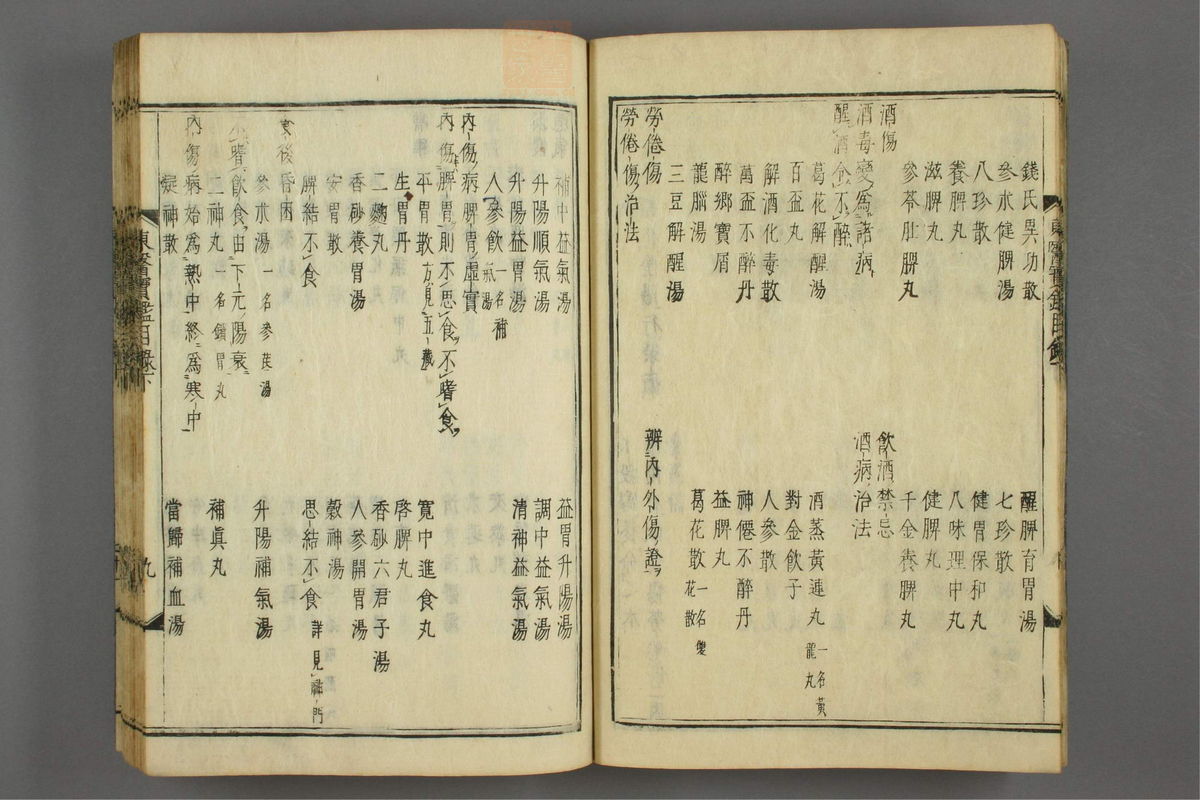 錢氏異功散 醒脾育胃湯
參朮健脾湯 七珍散
八珍散 健胃保和丸
養脾丸 八味理中丸
滋脾丸 健脾丸
參苓壯脾丸 千金養脾丸
酒傷 飮酒禁忌
酒毒變爲諸病 酒病治法
醒酒令不醉
葛花解醒湯 酒蒸黃連丸 一名黃龍丸
百盃丸 對金飮子
解酒化毒散 人參散
萬盃不醉丹 神僊不醉丹
醉鄕寶屑 益脾丸
龍腦湯 葛花散 一名雙花散
三豆解醒湯
勞倦傷 辨內外傷證
勞倦傷治法
東醫寶鑑目錄下
補中益氣湯 益胃升陽湯
升陽順氣湯 調中益氣湯
升陽益胃湯 淸神益氣湯
人參飮 一名補氣湯
內傷病脾胃虛實
內傷脾胃則不思食不嗜食
平胃散 方見五藏 寬中進食丸
生胃丹 啓脾丸
二麴丸 香砂六君子湯
香砂養胃湯 人參開胃湯
安胃散 穀神湯
脾結不食 思結不食 詳見神門
食後昏困
參朮湯 一名參芪湯 升陽補氣湯
不嗜飮食由下元陽衰
二神丸 一名鎖胃丸 補眞丸
內傷病始爲熱中終爲寒中
凝神散 當歸補血湯
東醫寶鑑目錄下 九